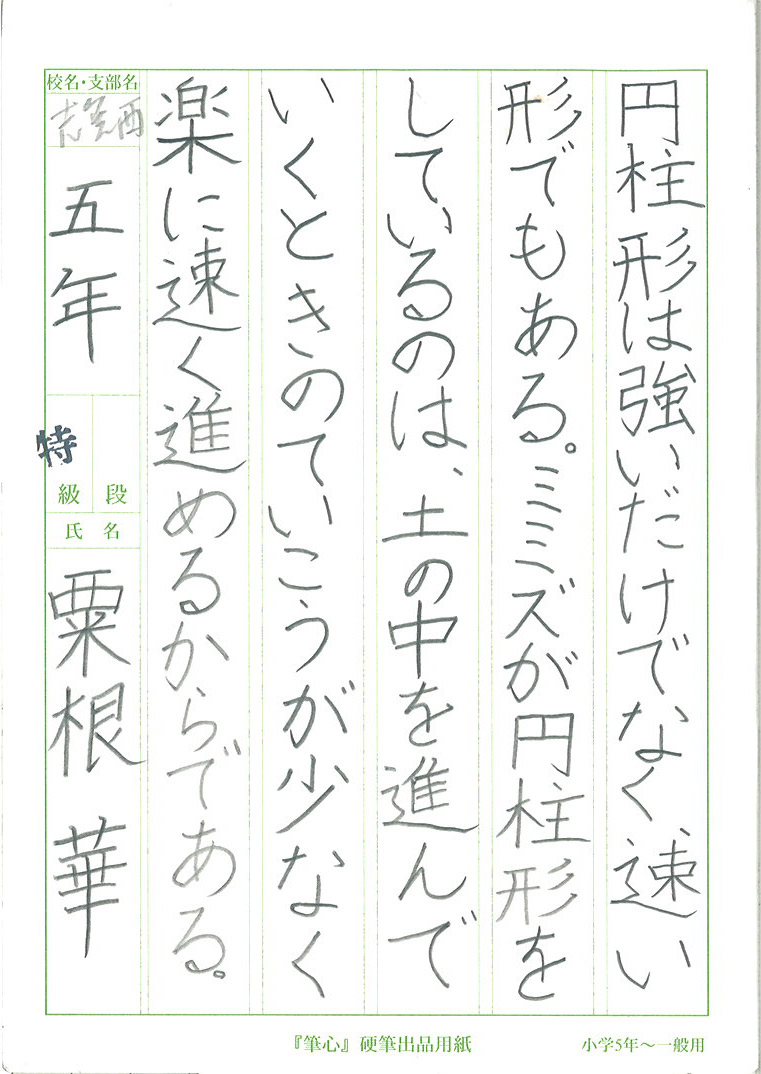 円柱形は強いだけでなく、速い
形でもある。ミミズが円柱形を
しているのは、土の中を進んで
いくときのていこうが少なく
楽に速く進めるからである。
校名・支部名
五年
特
級 段
氏名
粟根 華
『筆心』硬筆出品用紙
小学5年～一般用